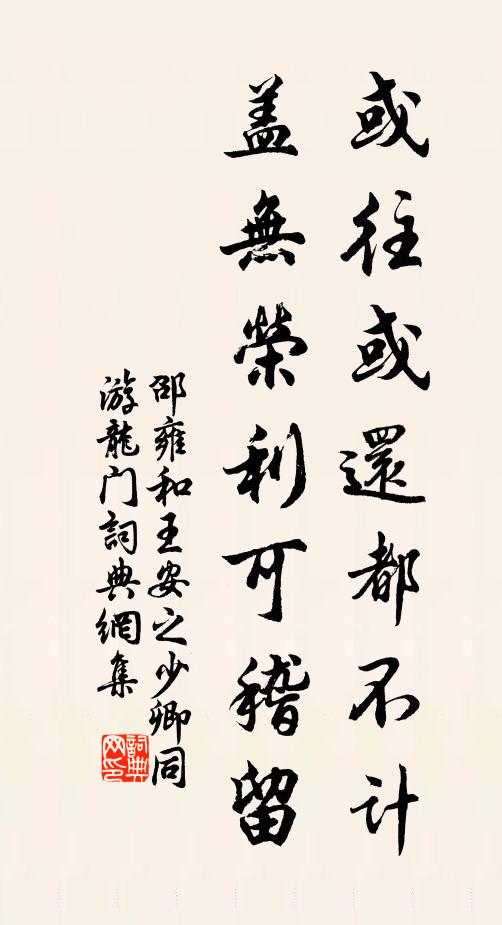 或往或還都不計
盖無榮利可稽留
邵雍和王安之少卿同
游龍门詞典網集
詞典
网印